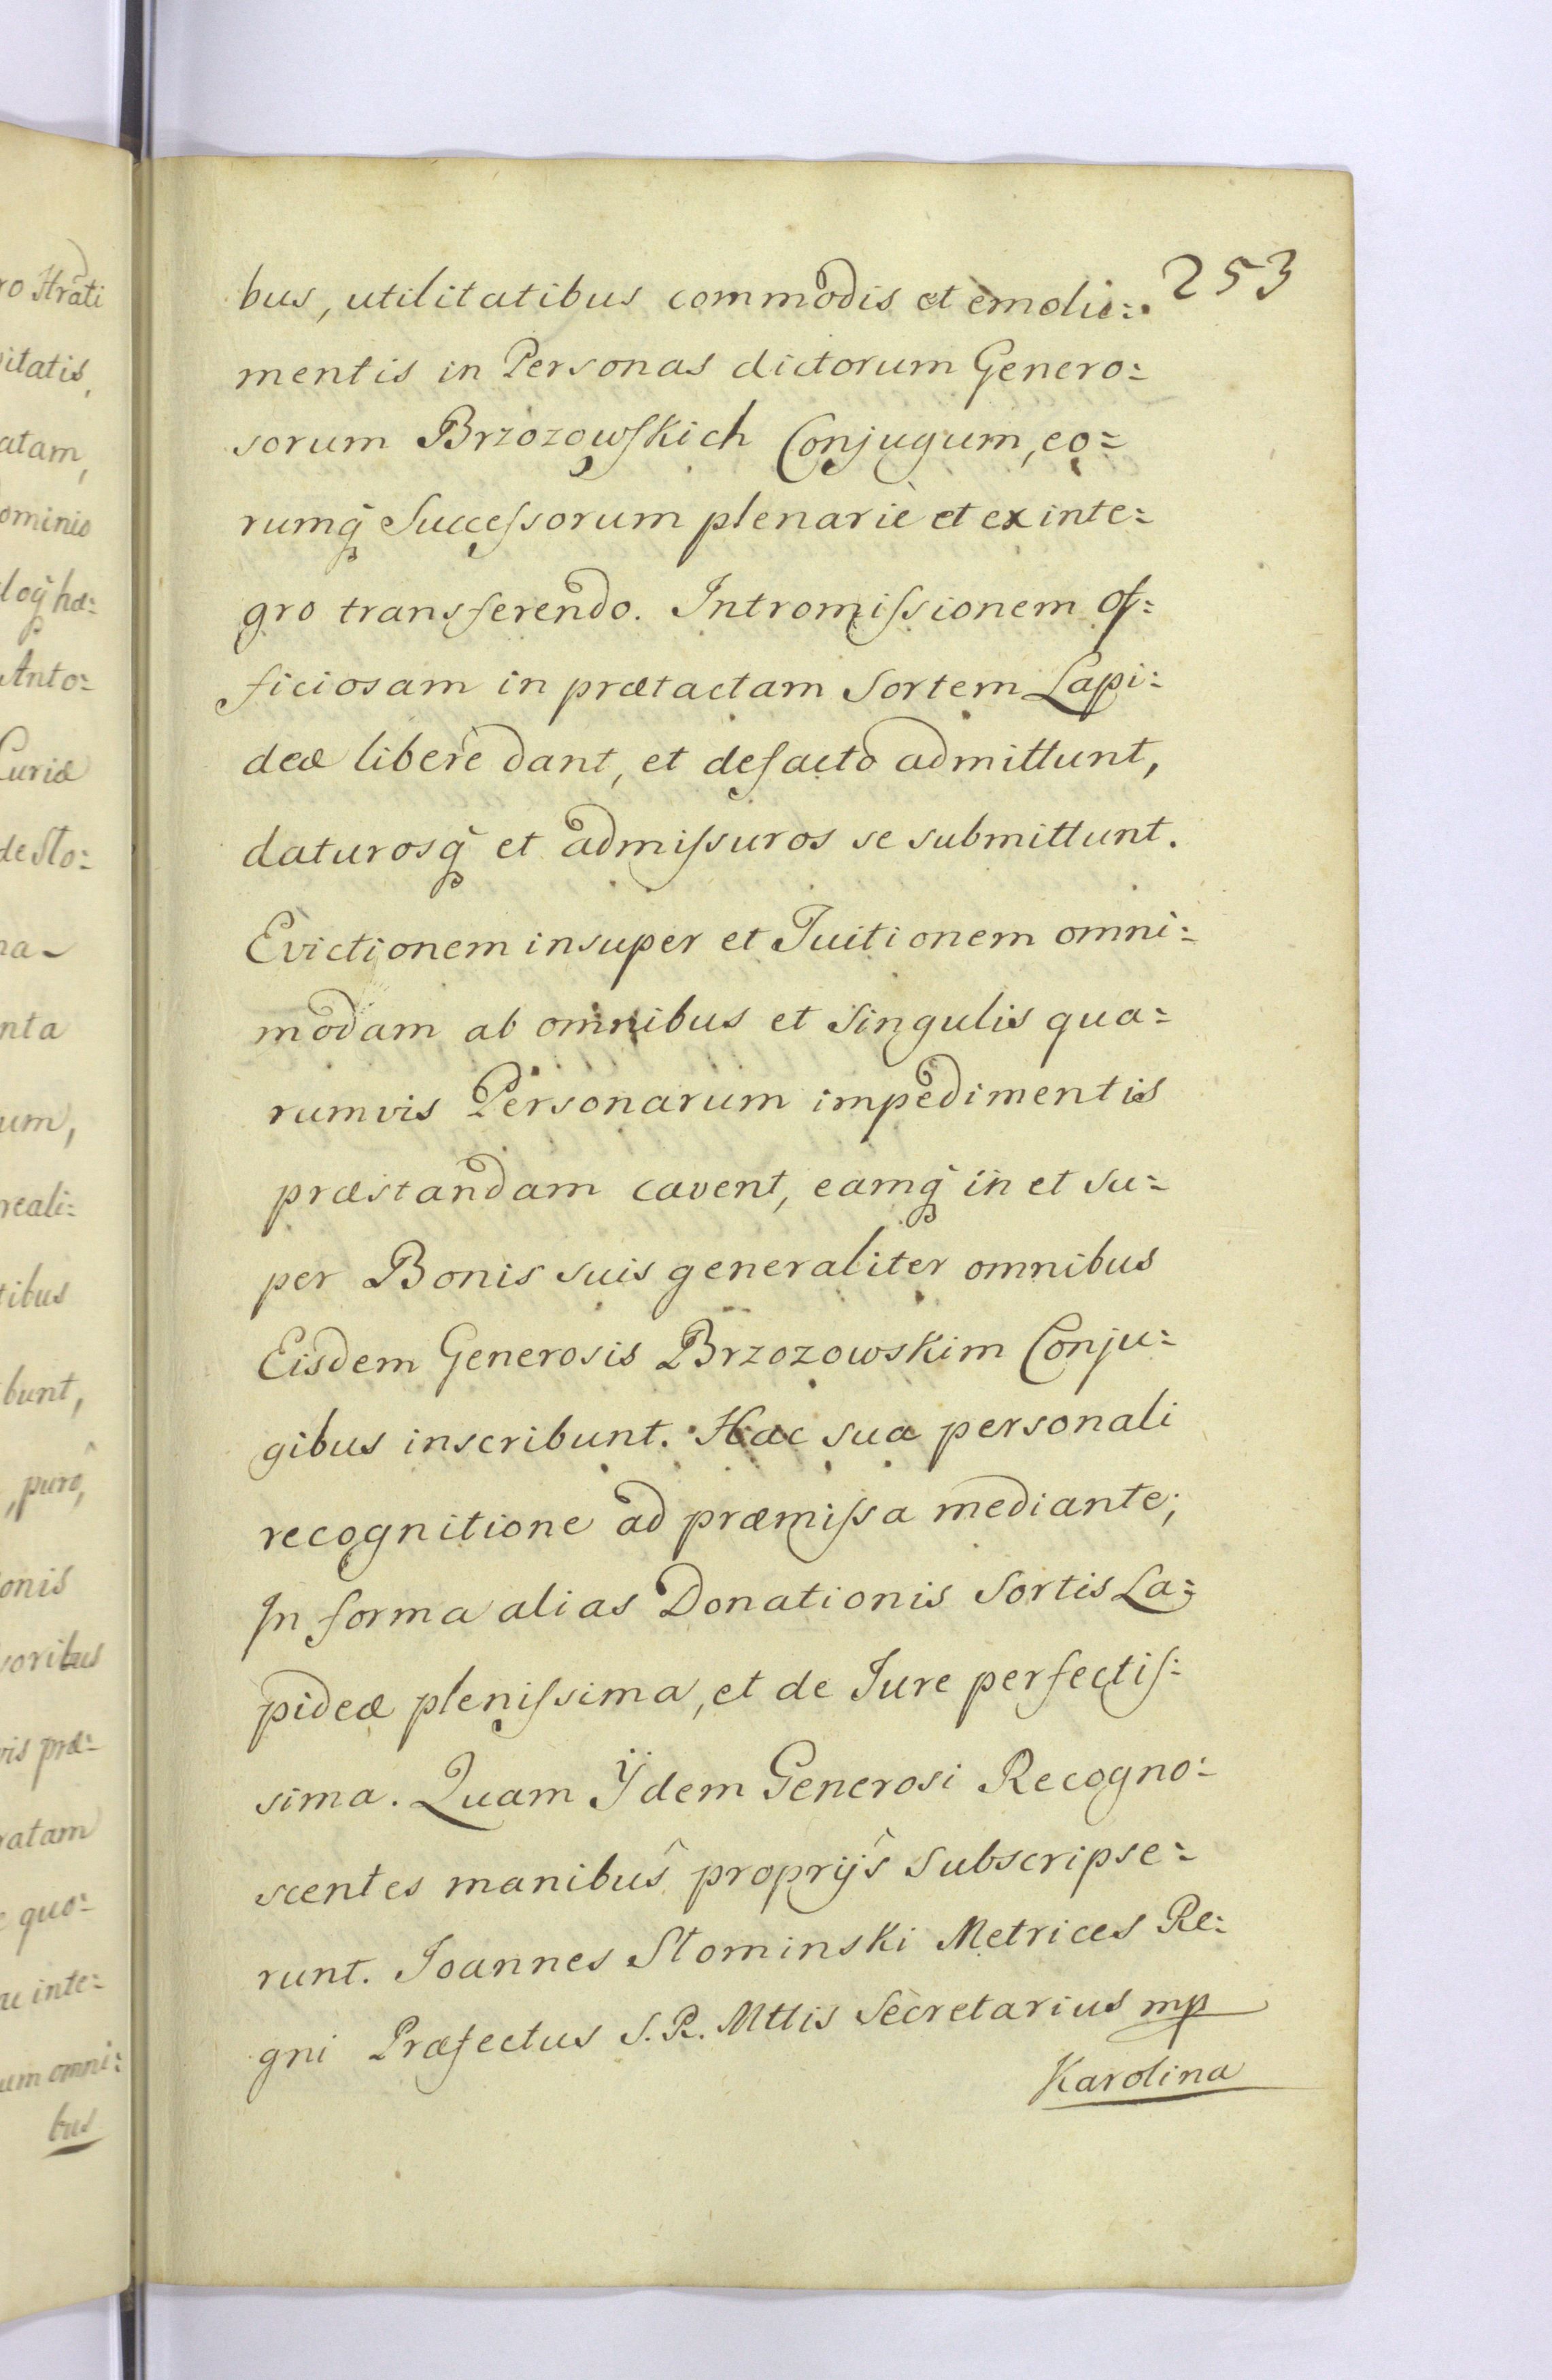 253
bus, utilitatibus commodis et emolu=
mentis in Personas dictorum Genero=
sorum Brzozowskich Conjugum, eo=
rumq̃ Successorum plenariè et ex inte=
gro transferendo. Intromissionem of=
ficiosam in prætactam Sortem Lapi=
deæ liberè dant, et defacto admittunt,
daturosq̃ et admissuros se submittunt.
Evictionem insuper et Tuitionem omni=
modam ab omnibus et Singulis qua=
rumvis Personarum impedimentis
præstandam cavent, eamq̃ in et su=
per Bonis suis generaliter omnibus
Eisdem Generosis Brzozowskim Conju=
gibus inscribunt. Hac sua personali
recognitione ad præmissa mediante;
In forma alias Donationis Sortis La=
pideæ plenissima, et de Jure perfectis=
sima. Quam Ÿdem Generosi Recogno=
scentes manibus proprijs subscripse=
runt. Joannes Słominski Metrices Re=
gni Præfectus S. R. Mttis Secretarius mp
Karolina